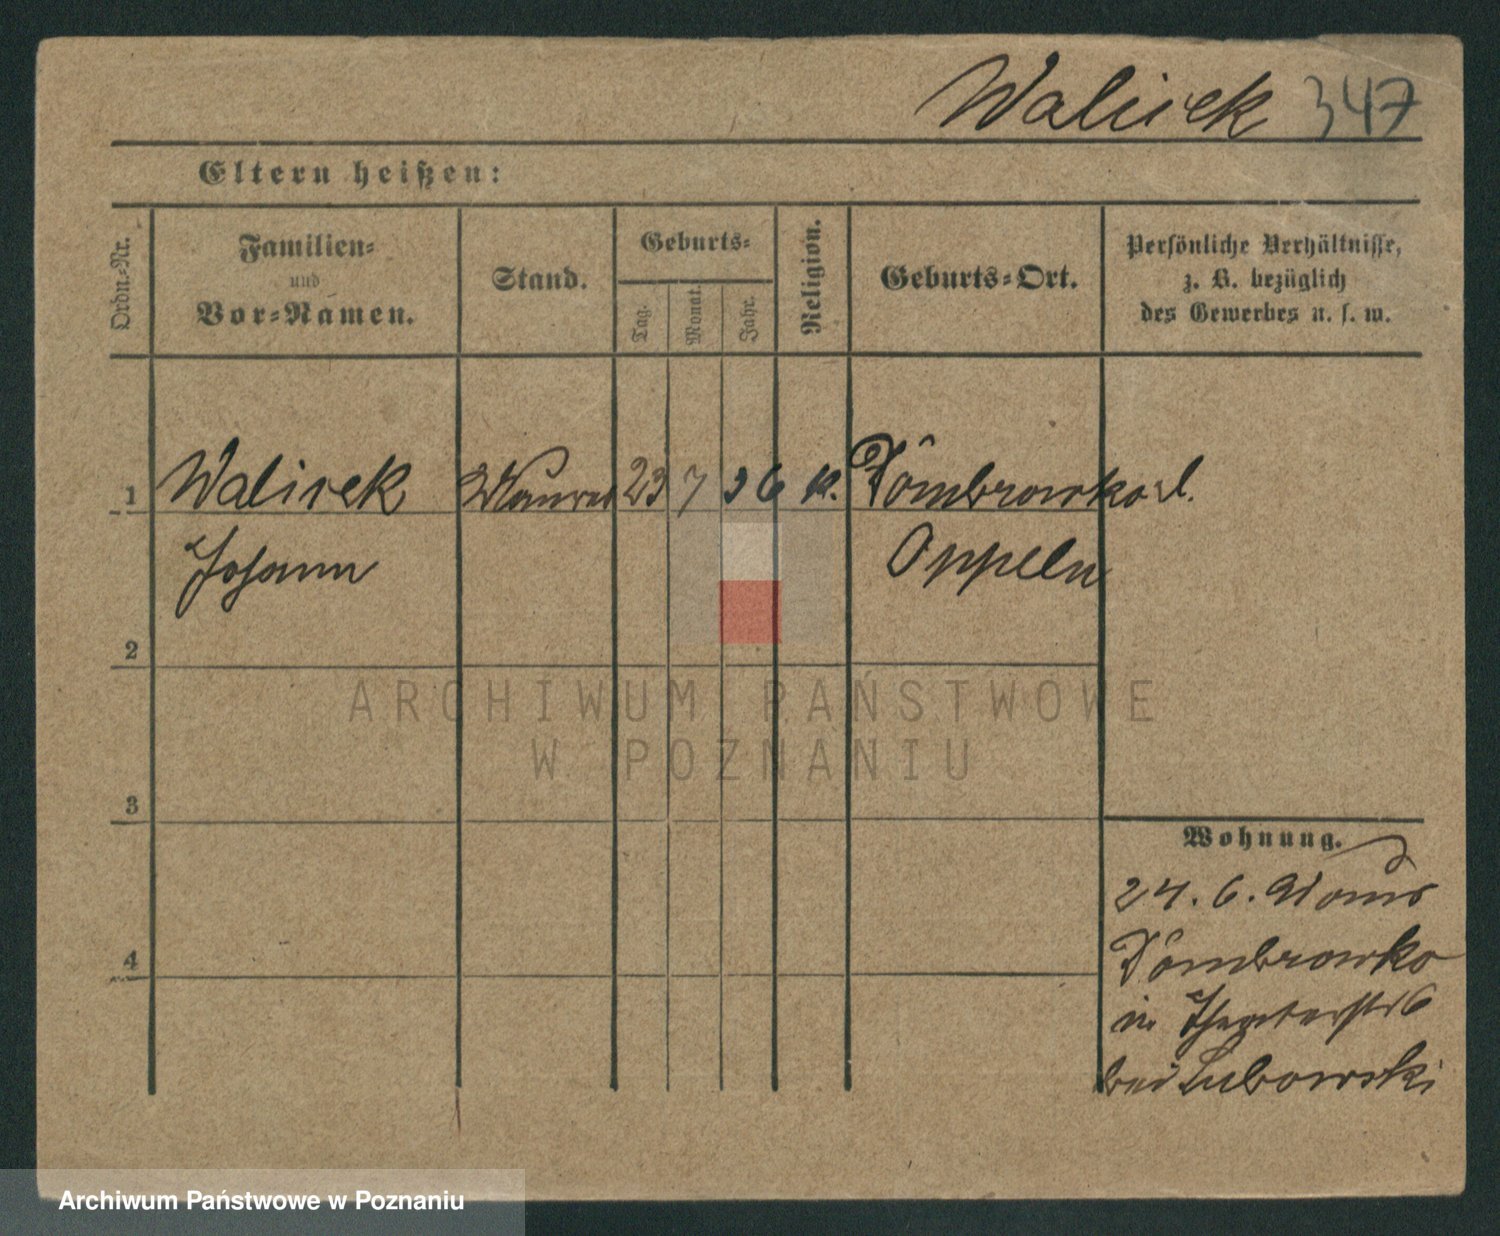 Walisek 347
Eltern heißen:
Ordn.-Nr.
Familien-
und
Vor-Namen.
Stand.
Geburts-
Tag.
Monat.
Jahr.
Religion.
Geburts-Ort.
Persönliche Verhältnisse,
z. B. bezüglich
des Gewerbes u. s. w.
1 Walisek Maurer 23 7 36 k. Dombrowka
Johann Oppeln
2
ARCHIWUM PAŃSTWOWE
W POZNANIU
3
Wohnung.
24. 6.
4 Dombrowko
in Theaterstr 6
bei Lubowski
Archiwum Państwowe w Poznaniu